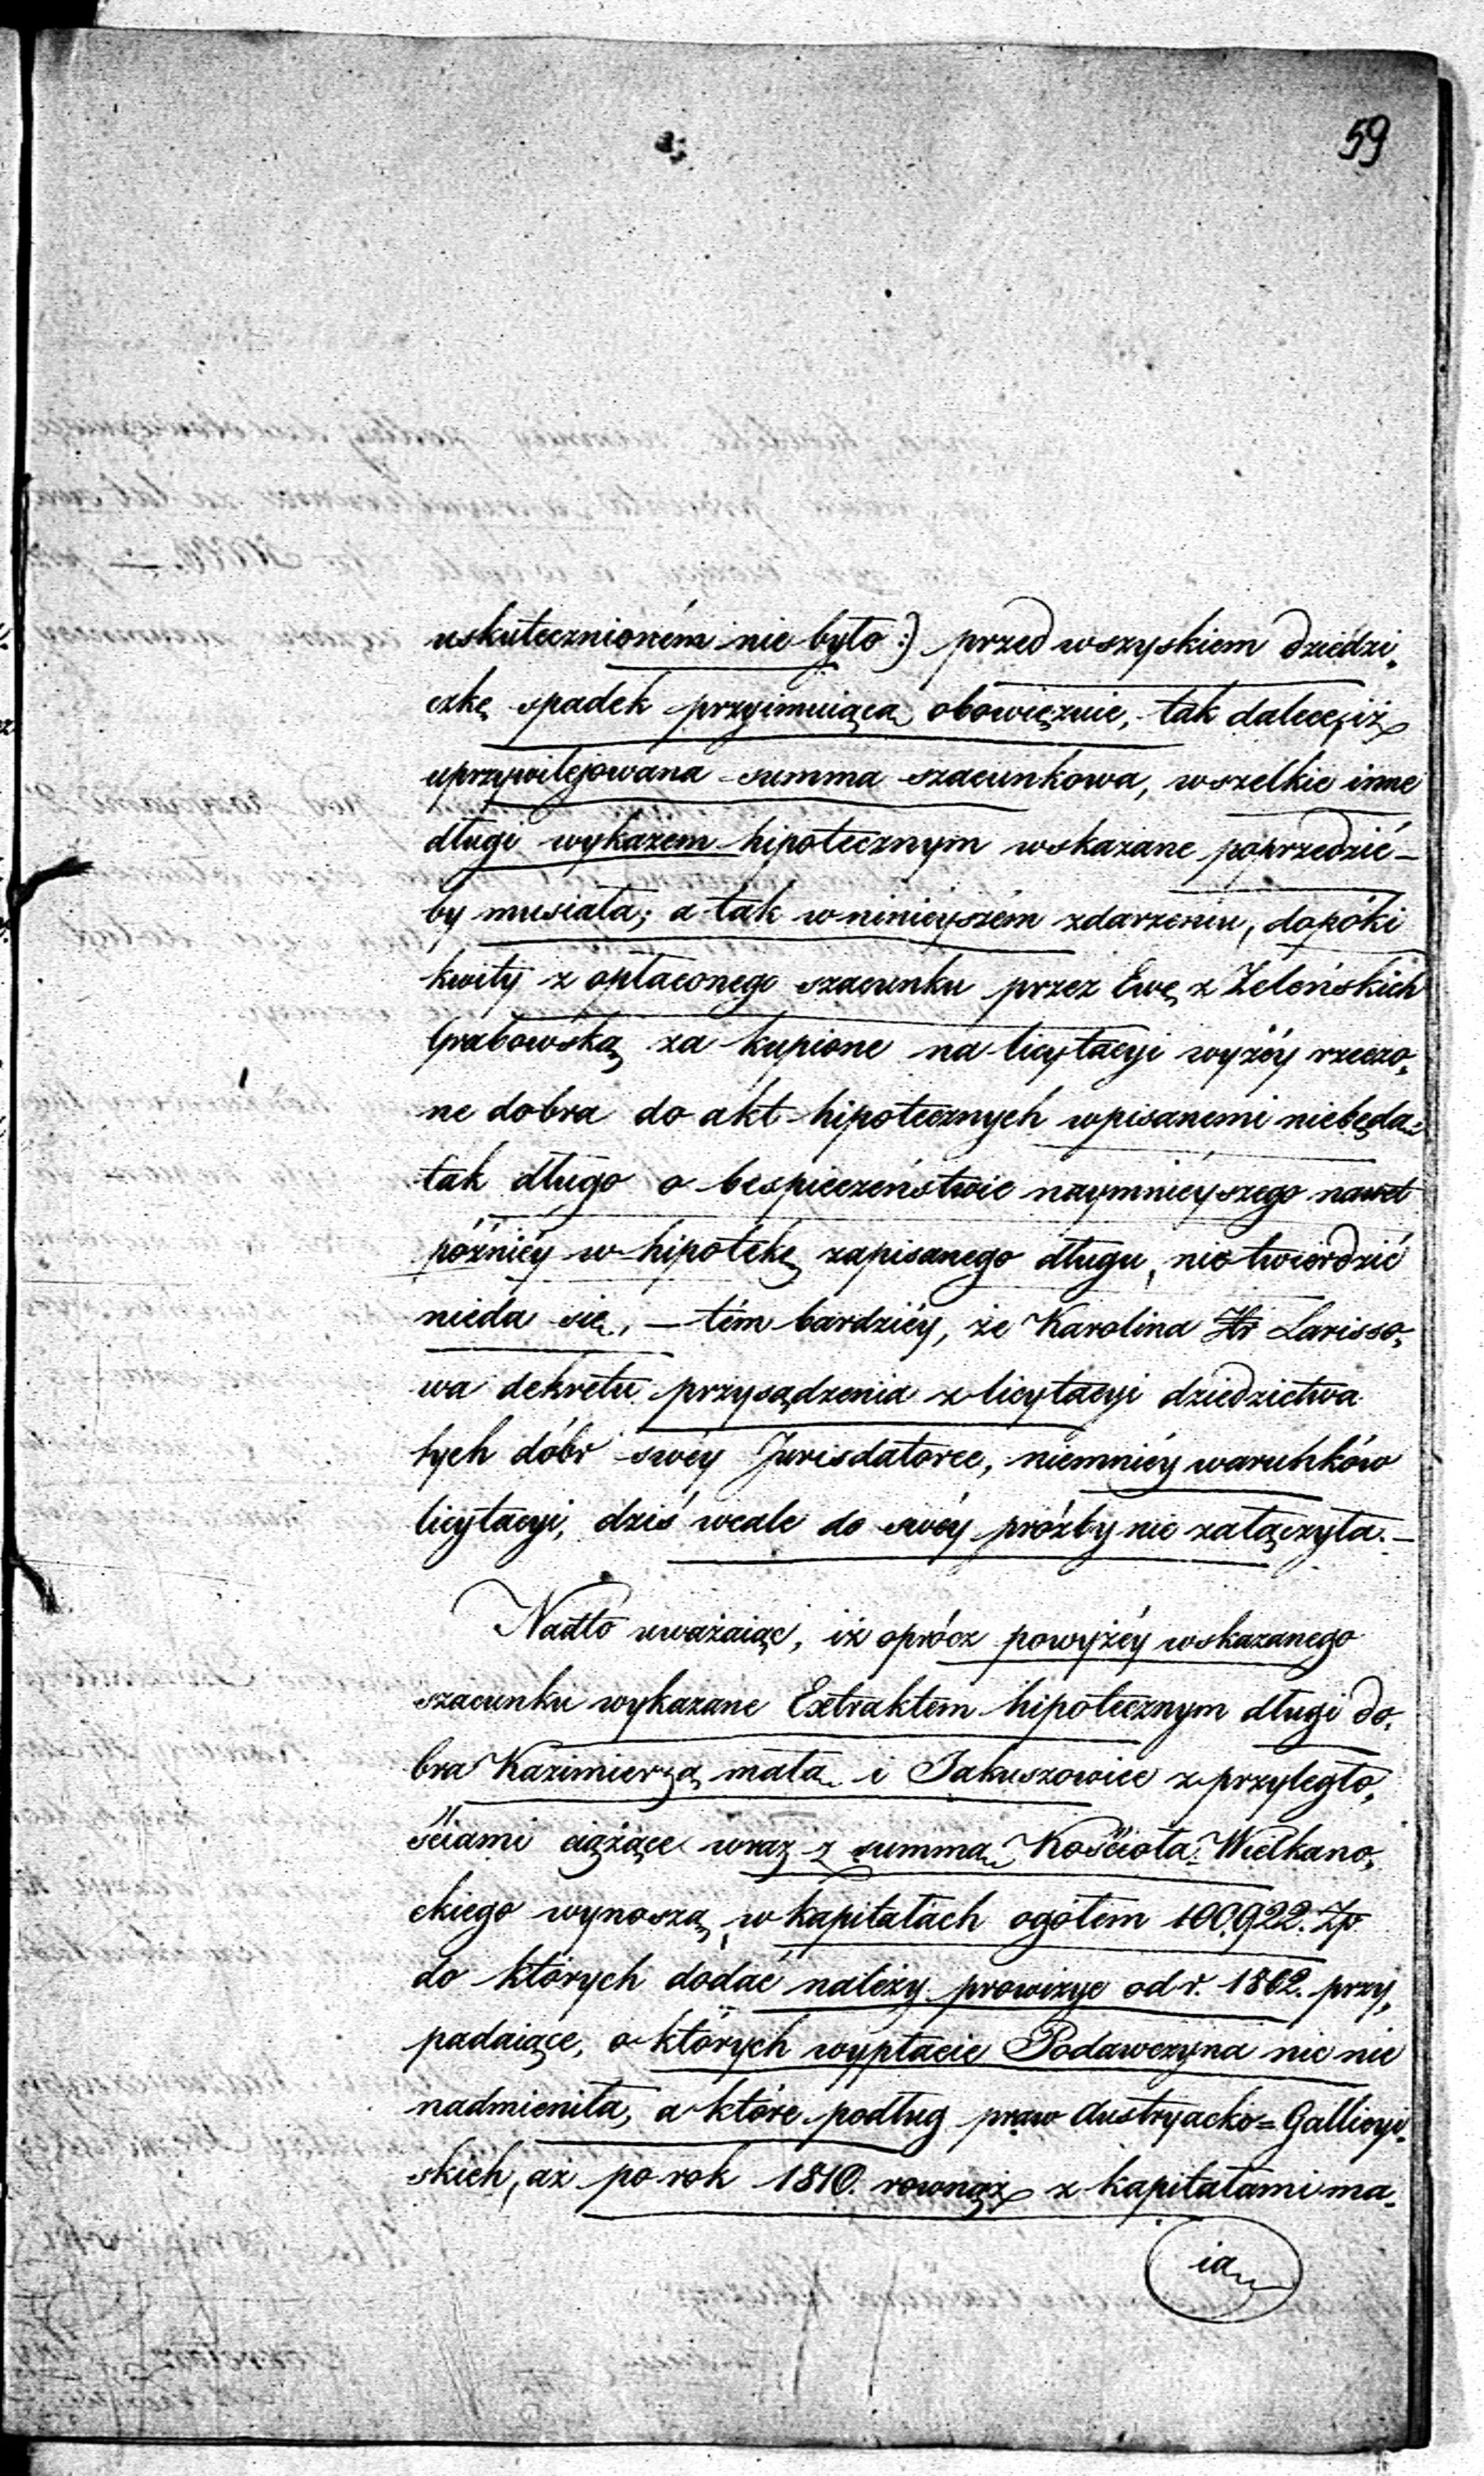 59
uskutecznioném nie było:) przed wszyskiem dziedzi„
czkę spadek przyimuiącą obowięzuie, tak dalece, iż
uprzywilejowana summa szacunkowa, wszelkie inne
długi wykazem hipotecznym wskazane poprzedzić –
by musiała; a tak w ninieyszém zdarzeniu, dopóki
kwity z opłaconego szacunku przez Ewę z Zeleńskich
Grabowską za kupione na licytacyi wyżéy rzeczo„
ne dobra do akt hipotecznych wpisanemi niebędą
tak długo o bespieczeństwie naymnieyszego nawet
pózniéy w hipotékę zapisanego długu, nic twierdzić
nieda się, – tém bardziéy, że Karolina Hr Larisso„
wa dekretu przysądzenia z licytacyi dziedzictwa
tych dóbr swéy Jurisdatorce, niemniéy warunków
licytacyi, dziś wcale do swéy prózby nie załączyła. –
Nadto uważaiąc, iż oprócz powyżéy wskazanego
szacunku wykazane Extraktem hipotecznym długi do„
bra Kazimierzą małą i Jakuszowice z przyległo„
ściami ciążące wraz z summą Kościoła Wielkano„
ckiego wynoszą w kapitałach ogółem 100.922. Zp
do których dodać należy prowizye od r. 1802. przy„
padaiące, o których wypłacie Podawczyna nic nie
nadmieniła, a które podług praw Austryacko=Gallicyi„
skich, aż po rok 1810. rownąż z kapitałami ma„
ią